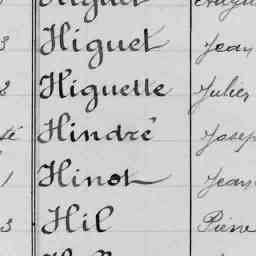 3 Higuet Jean
2 Higuette Julien
Hindré Joseph
1 Hinot Jean
3 Hil Pierre